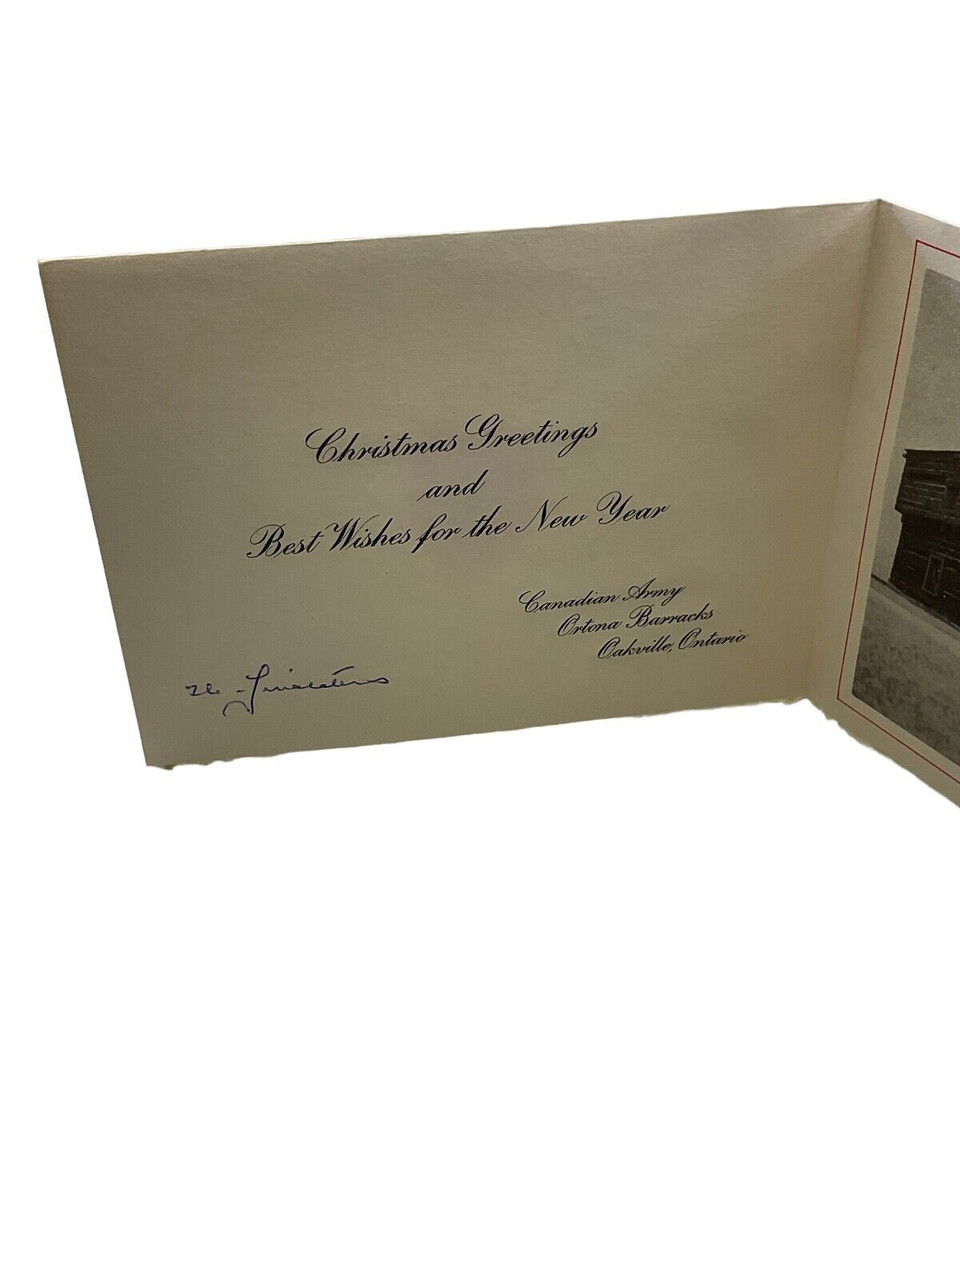 Christmas Greetings
and
Best Wishes for the New Year
Canadian Army
Ortona Barracks
Oakville, Ontario
The